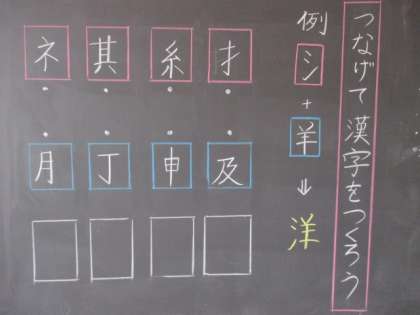 つなげて漢字をつくろう
例 シ + 羊 ⇓ 洋
扌 糸 其 ネ
及 申 丁 月